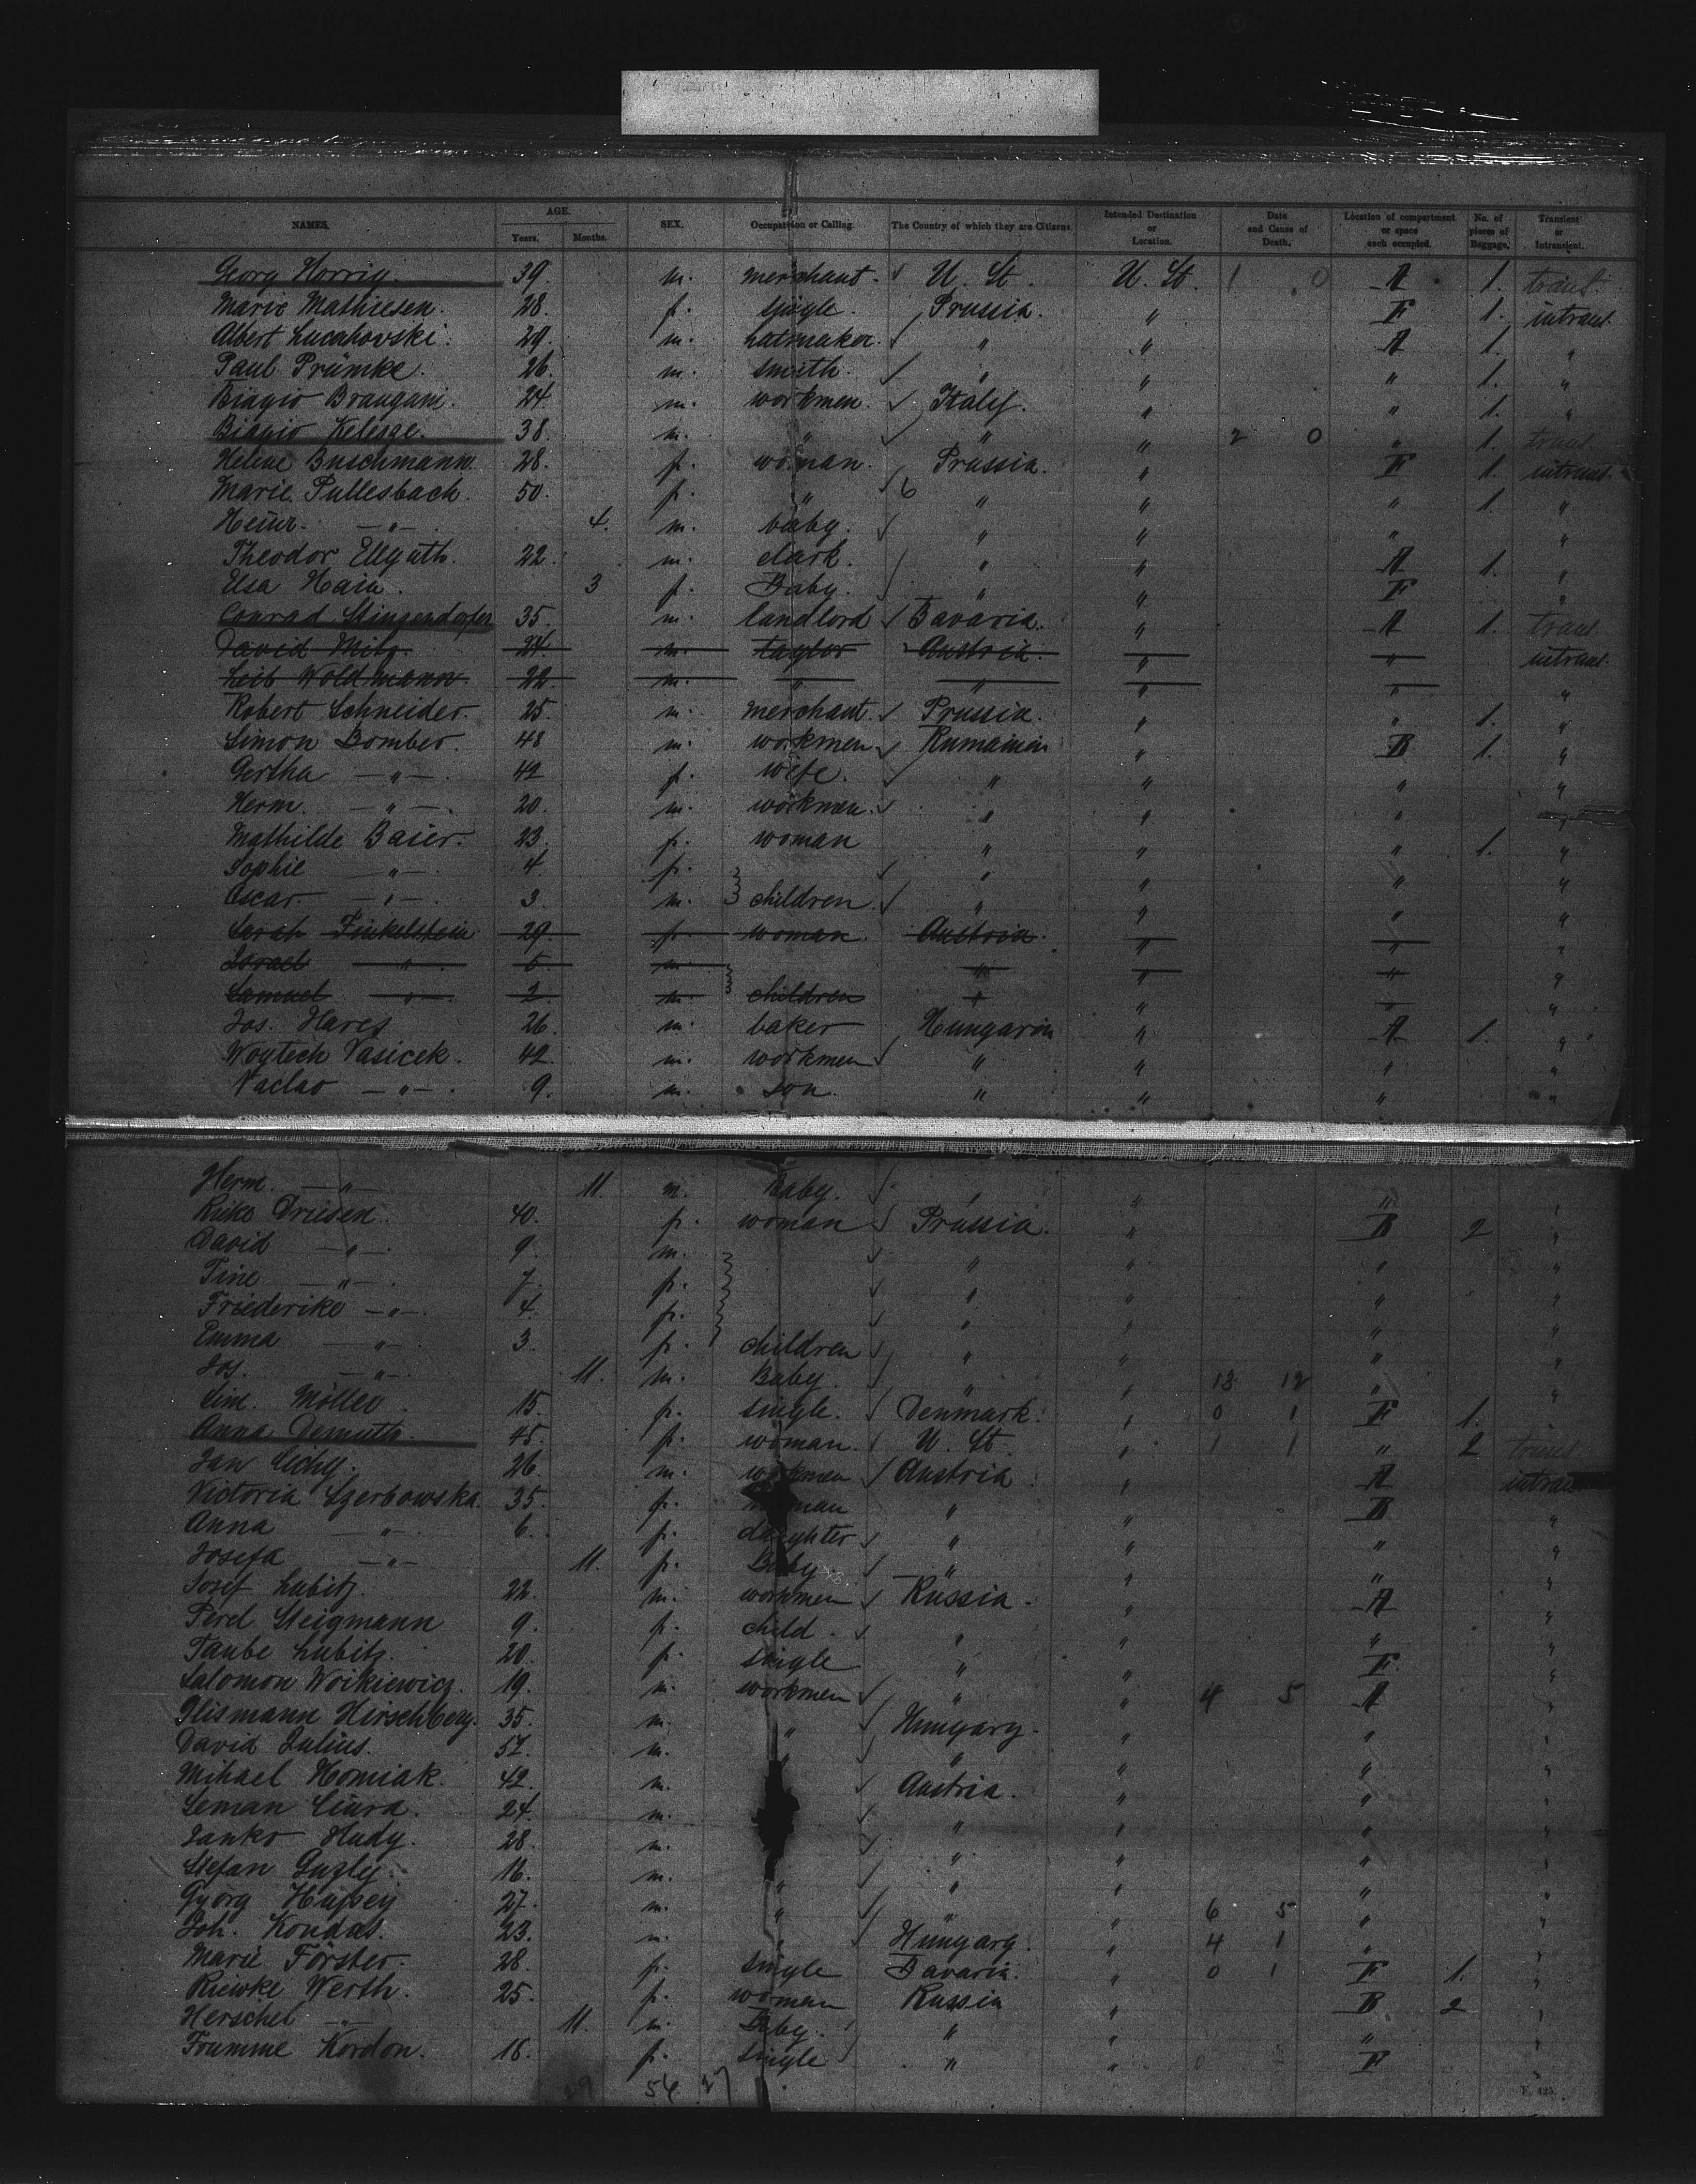 NAMES. AGE. Years. Months. SEX. Occupation or Calling. The Country of which they are Citizens. Intended Destination or Location. Date and Cause of Death. Location of compartment or space each occupied. No. of pieces of Baggage. Transient or Intransient.
Georg Horrig. 39. m. merchant. U. St. U. St. 1 0 A 1. trans.
Marie Mathiesen. 28. f. single. Prussia. " F 1. intrans.
Albert 29. m. hatmaker. " " A 1. "
Paul Prümke. 26. m. smith. " " " 1. "
Biagio Braugani. 24. m. workmen. Italy. " " 1. "
Biagio Kelesge. 38. m. " " " 2 0 " 1. trans.
Helene Buschmann. 28. f. woman. Prussia. " F 1. intrans.
Marie Pullesbach. 50. f. " 6 " " " 1. "
Heinr. —"— 4. m. baby. " " " "
Theodor Ellguth. 22. m. clark. " " A 1. "
Elsa Hain. 3 f. Baby. " " F "
Conrad 35. m. landlord Bavaria. " A 1. trans.
David Mitz. 24. m. taylor Austria. " " intrans.
Leib Woldmann. 22. m. " " " " "
Robert Schneider. 25. m. merchant. Prussia. " " 1. "
Simon Bomber. 48 m. workmen Rumainin " B 1. "
Gertha —"—. 42 f. wife. " " " "
Herm. —"—. 20. m. workmen. " " " "
Mathilde Baier. 23. f. woman " " " 1. "
Sophie —"—. 4. f. " " " "
Oscar —"—. 3. m. children. " " " "
Sarah Finkelstein 29. f. woman. Austria. " " "
Israel —"—. 5. m. " " " "
Samuel —"—. 2. m. children " " " "
Jos. Harcs 26. m. baker Hungarin " A 1. "
Woytech Vasicek. 42. m. workmen " " " "
Vaclav —"—. 9. m. son. " " " "
Herm. —"— 11. m. baby. " " " "
Rieke Driesen. 40. f. woman Prussia. " B 2 "
David —"—. 9. m. " " " "
Tine —"—. 7. f. " " " "
Friederike —"—. 4. f. " " " "
Emma —"—. 3. f. children " " " "
Jos. —"—. 11. m. Baby. " " 13 12 " "
Sine. Möller. 15. f. single. Denmark. " 0 1 F 1.
Anna Demuth. 45. f. woman. U. St. " 1 1 " 2 trans.
Jan Cichy. 26. m. workmen Austria. " A intrans
Victoria Szerbowska. 35. f. woman " " B "
Anna —"—. 6. f. daughter " " " "
Josefa —"— 11. f. Baby " " " "
Josef Lubitz. 22. m. workmen Russia. " A "
Perel Steigmann 9. f. child. " " " "
Taube Lubitz. 20. f. single " " F. "
Salomon Woikiewicz. 19. m. workmen " " 4 5 A "
Hirschberg. 35. m. " Hungary. " " "
David Julius. 57. m. " " " " "
Mihael Homiak. 42. m. Austria. " " "
Seman Ciura. 24. m. " " " "
Janko Hudy. 28. m. " " " "
Stefan Guzly. 16. m. " " " " "
Györg 27. m. " " " 6 5 " "
Joh. Kondas. 23. m. " Hungary. " 4 1 " "
Marie Förster. 28. f. single Bavaria. " 0 1 F 1. "
Riewke Werth. 25. f. woman Russia " B 2 "
Herschel —"— 11. m. Baby. " " " "
Frumme Kordon. 16. f. single " " F "
29 54 27
F. 425.